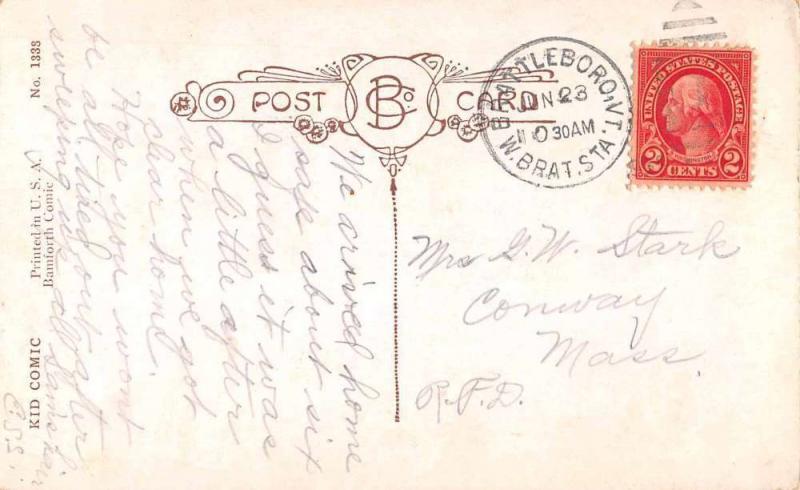 KID COMIC
Printed in U. S. A.
Bamforth Comic
No. 1333
POST CARD
B Co
BRATTLEBORO, VT.
JUN 23
10 30AM
W. BRAT. STA.
UNITED STATES POSTAGE
WASHINGTON
2 CENTS 2
We arrived home
safe about six
I guess it was
a little after
when we got
clear home.
Hope you wont
be all tired out after
sweeping up all
hair
E.S.S.
Mrs G. W. Stark
Conway
Mass.
R.F.D.